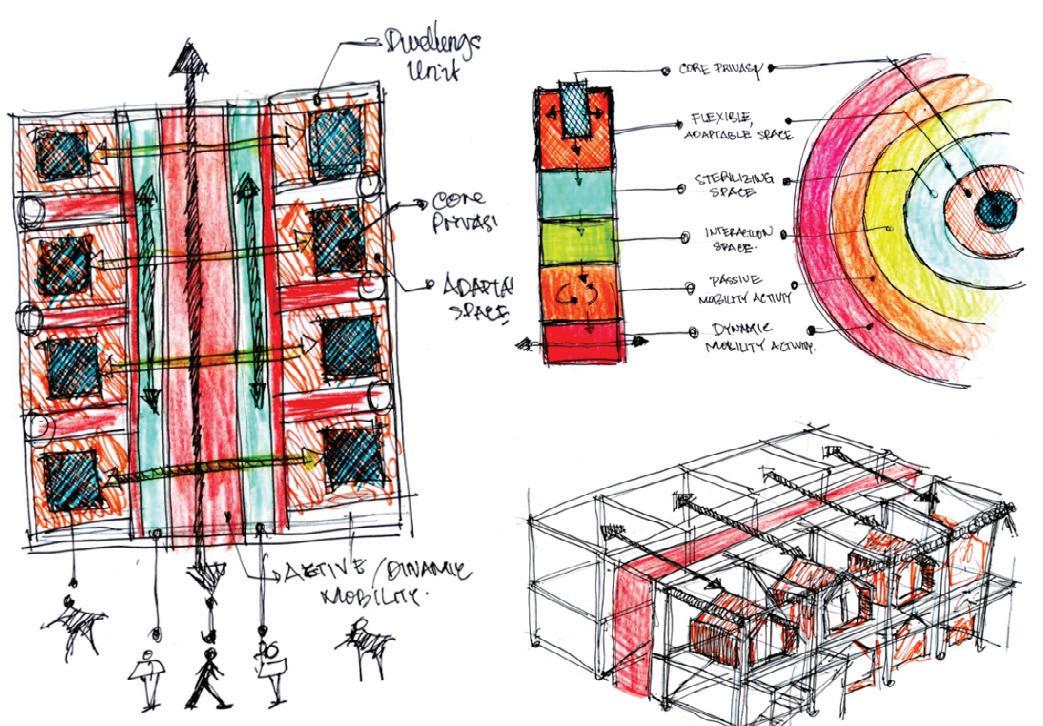 Dwellings
Unit
CORE
PRIVASI
ADAPTAS
SPACE
ACTIVE / DINAMIC
MOBILITY.
CORE PRIVASY
FLEXIBLE,
ADAPTABLE SPACE
STERILIZING
SPACE
INTERACTION
SPACE.
PASSIVE
MOBILITY ACTIVITY
DYNAMIC
MOBILITY ACTIVITY.